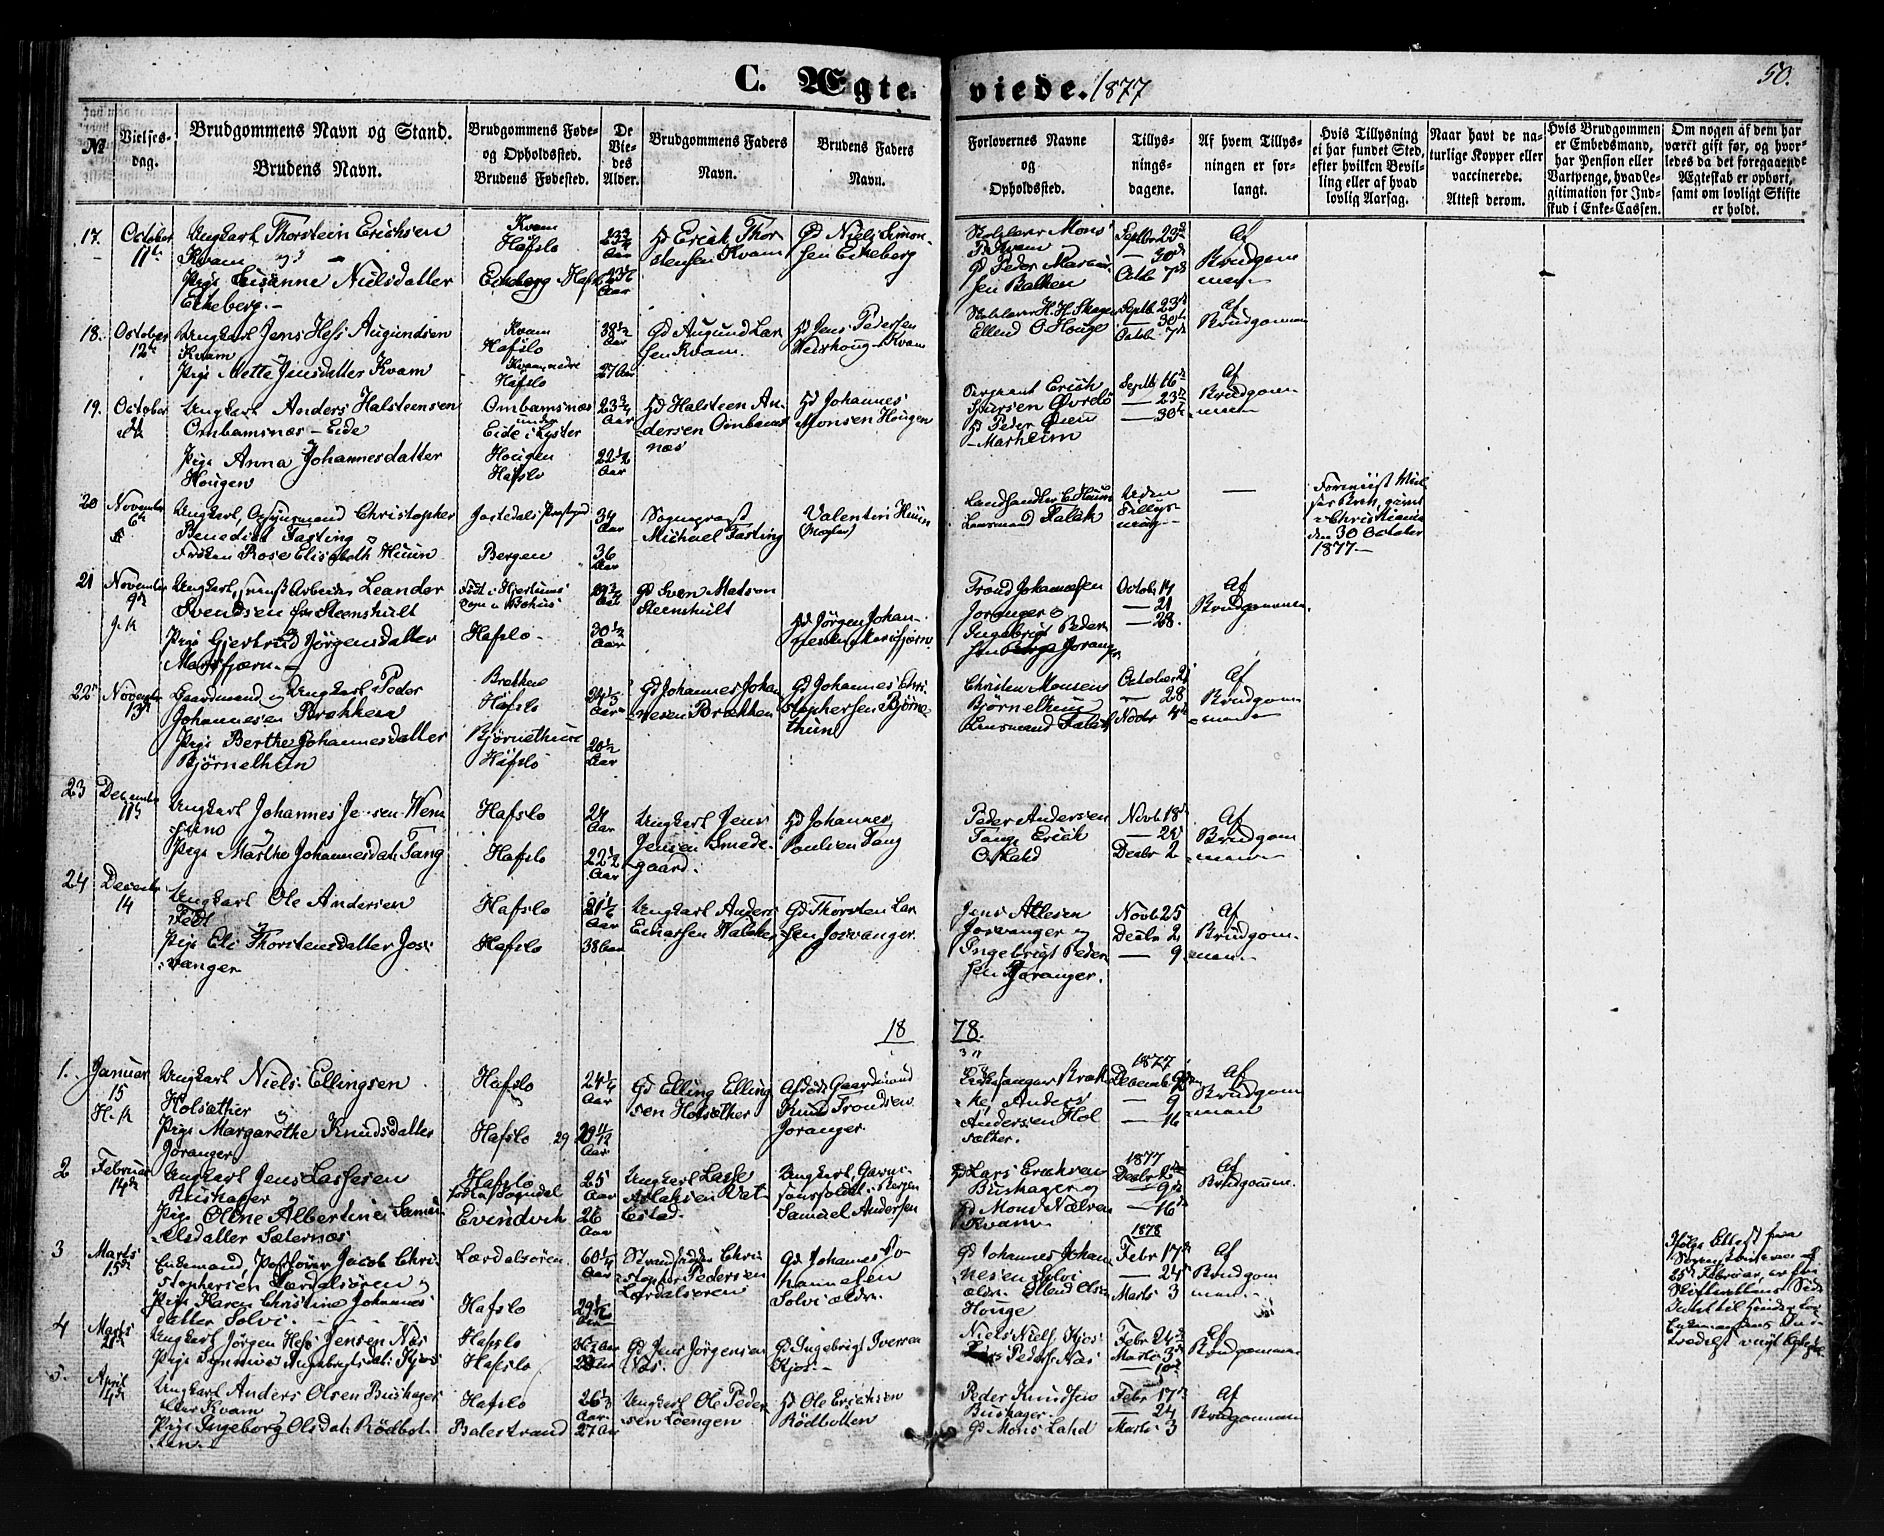 C. Ægteviede. 1877
50.
№
Vielses-
dag.
Brudgommens Navn og Stand.
Brudens Navn.
Brudgommens Føde-
og Opholdssted.
Brudens Fødested.
De
Vie-
des
Alder.
Brudgommens Faders
Navn.
Brudens Faders
Navn.
Forlovernes Navne
og
Opholdssted.
Tillys-
nings-
dagene.
Af hvem Tillys-
ningen er for-
langt.
Hvis Tillysning
ei har fundet Sted,
efter hvilken Bevil-
ling eller af hvad
lovlig Aarsag.
Naar havt de na-
turlige Kopper eller
vaccinerede.
Attest derom.
Hvis Brudgommen
er Embedsmand,
har Pension eller
Vartpenge, hvad Le-
gitimation for Ind-
stud i Enke-Cassen.
Om nogen af dem har
været gift før, og hvor-
ledes da det foregaaende
Ægteskab er ophørt,
samt om lovligt Skifte
er holdt.
17.
October
11te
Ungkarl Thorstein Erichsen
Kvam og
Pige Susanne Nielsdatter
Eikeberg.
Kvam
Hafslo
Eikeberg Hafslo
23 3/4
Aar
23 1/2
Aar
Gd Erich Thor
stensen Kvam
Gd Niels Simon-
sen Eikeberg
Skolelærer Mons
P. Kvam
Gd Peder
sen Bakken
Septbr 23de
— 30te
Octb. 7de
Af
Brudgom
men
18.
October
12te
Ungkarl Jens Hess Augundsen
Kvam
Pige Mette Jensdatter Kvam
Kvam
Hafslo
Kvam nedre
Hafslo
38 1/2
Aar
27 Aar
Gd Augund Lar
sen Kvam.
Gd Jens Pedersen
Kvam
Skolelærer H. H. Skagen
Ellend O Houge
Septb. 23de
— 30te
Octob. 7de
Af
Brudgommen
19.
October
Ungkarl Anders Halsteensen
Ombamsnæs - Eide
Pige Anna Johannesdatter
Hougen
Ombamsnæs
under
Eide i Lyster
Hougen
Hafslo
23 3/4
Aar
22 1/2
Aar
Gd Halsteen An
dersen Ombams
næs
Gd Johannes
Monsen Hougen
Sergeant Erich
Gd Peder
Marheim
Septb 16de
— 23de
— 30te
Af
Brudgom
men
20
November
6te
Ungkarl, Opsynsmand Christopher
Benedict Fasting og
Frøken Rose Elisabeth Huun
Jostedals Præstegjeld
Bergen
34
Aar
36
Aar
Sognepræst
Michael Fasting
Valentin Huun
(Mægler)
Landhandler C Huun
Lensmand Falck
Uden
Tillys-
ning
—
Christiania
den 30 October
1877
21
November
9de
Ungkarl, svensk Arbeider Leander
Svendsen fra Steenshult
Pige Gjertrud Jørgensdatter
Marifjæren
Født i Hjertums
Sogn i Bohus
Hafslo
29 3/4
Aar
30 1/2
Aar
Gd Sven Matson
Steenshult
Gd Jørgen Johan-
nesen Marifjæren
Trond Johannesen
Joranger og
Ingebrigt Peder
sen Joranger
Octob. 14
— 21
— 28.
Af
Brudgommen
22
November
13de
Gaardmand og Ungkarl Peder
Johannesen Brækken
Pige Berthe Johannesdatter
Bjørnethun
Brækken
Hafslo
Bjørnethun
Hafslo
Aar
20 1/2
Aar
Gd Johannes Johan
nesen Brækken
Gd Johannes Chri
stophersen Bjørne-
thun
Christen Monsen
Bjørnethun
Lensmand Falck
October 21
— 28
Novbr 4de
Af
Brudgom
men
23
December
11te
Ungkarl Johannes Jensen Wem
Pige Marthe Johannesdatt. Tang
Hafslo
Hafslo
24
Aar
22 1/2
Aar
Ungkarl Jens
Jensen Smede-
gaard.
Gd Johannes
Poulsen Tang
Peder Andersen
Tang Erick
O. Lahd
Novb. 18de
— 25
Decbr 2
Af
Brudgom
men
24
December
14
Ungkarl Ole Andersen
Fedt
Pige Eli Thorstensdatter Jos-
vanger
Hafslo
Hafslo
21 1/2
Aar
38 Aar
Ungkarl Anders
Einarsen
Gd Thorsten Lar
sen Josvanger
Jens Atlesen
Josvanger og
Ingebrigt Peder
sen Joranger.
Novb. 25
Decbr 2
— 9
Af
Brudgom-
men
1878.
1.
Januar
15
H.K
Ungkarl Niels Ellingsen
Holsæther og
Pige Margarethe Knudsdatter
Joranger
Hafslo
Hafslo
24 1/4
Aar
29 11/12
Aar
Gd Elling Elling
sen Holsæther
Afdøde Gaardmand
Knud Trondsen
Joranger
Kirkesanger Bræk
ke, Anders
Andersen Hol
sæther.
1877
December
— 9
— 16
Af
Brudgom
men
2
Februar
14de
Ungkarl Jens Lassesen
Bushager
Pige Oline Albertine Samu-
elsdatter Sæternæs
Hafslo
født i Sogndal
Evindvik
25
Aar
26
Aar
Ungkarl Lasse
Aslaksen Vat-
lestad.
Ungkarl Garni-
sonssoldat i Bergen
Samuel Andersen
Gd Lars Ericksen
Bushager og
Gd Mons Nielsen
Kvam
1877
Decbr 2den
— 9de
— 16de
Af
Brudgomme.
3
Marts
15de
Enkemand, Postfører Jacob Chri-
stophersen Lærdalsøren og
Pige Karen Christine Johannes
datter Solvi
Lærdalsøren
Hafslo
60 1/4
Aar
29 1/2
Aar
Strandsidder Chri-
stopher Pedersen
Lærdalsøren
Gd Johannes Jo-
hannesen
Solvi ældre
Gd Johannes Johan
nesen Solvi
ældre. Ellend Olsen
Houge
1878
Febr 17de
— 24
Marts 3
Af
Brudgom
men
Ifølge Attest fra
Sorenskriveren af
25de Februar, er
4
Marts
Ungkarl Jørgen Hess Jensen Næs
Pige Synneve Ingebrigtsdatt. Kjos
Hafslo
Hafslo
Gd Jens Jørgensen
Næs
Gd Ingebrigt Iversen
Kjos
Niels Niels. Kjos
Peders. Næs
Febr 24de
Marts 3de
— 10de
Af
Brudgommen
5.
April
4de
Ungkarl Anders Olsen Bushager
Kvam
Pige Ingeborg Olsdatt. Rødbot-
ten
Hafslo
Balestrand
26 1/3
Aar
27 Aar
Ungkarl Ole Peder
sen Løengen
Gd Ole Ericksen
Rødbotten
Peder Knudsen
Bushager.
Gd Mons Lahd
Febr 17de
— 24
Marts 3
Af
Brudgommen